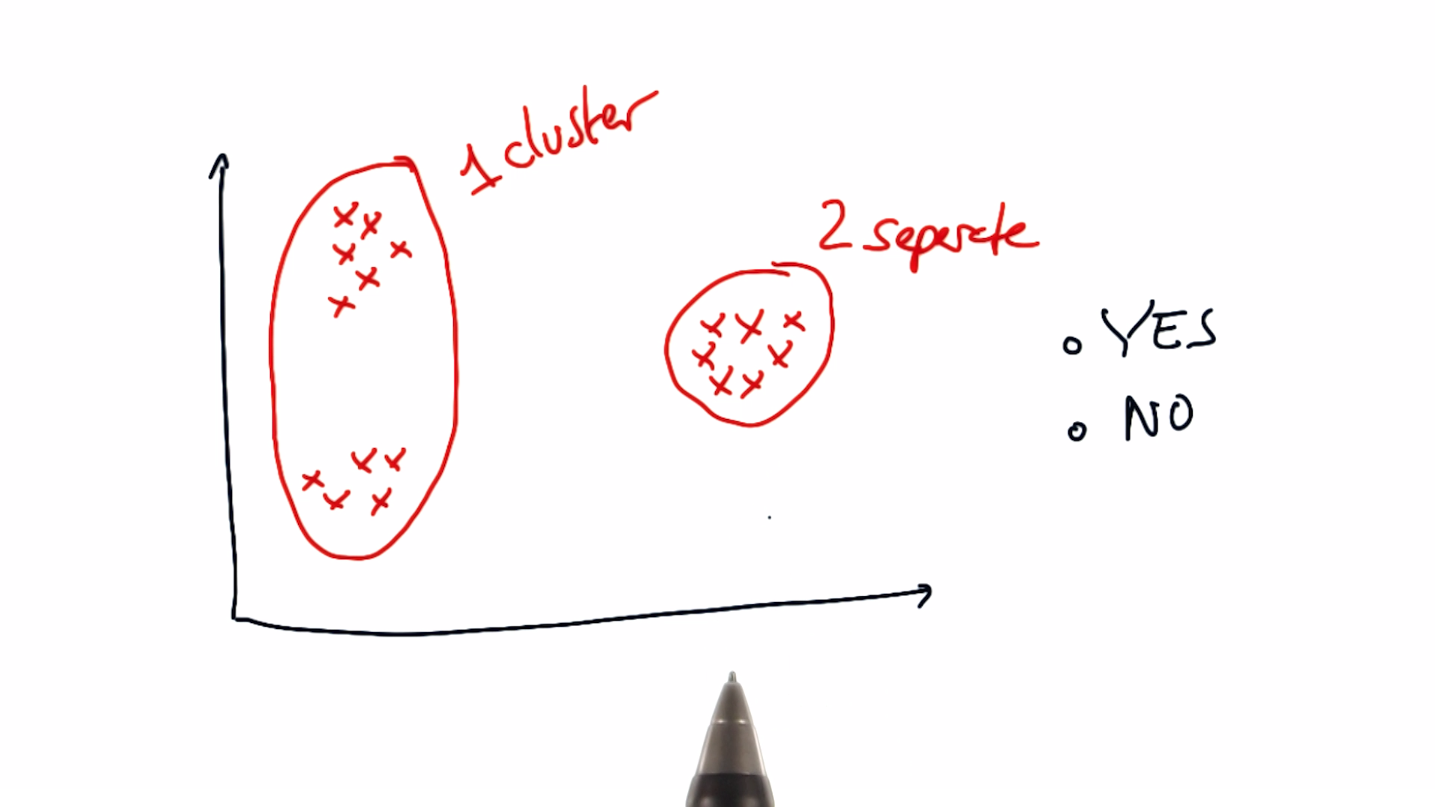 1 cluster
2 seperate
YES
NO